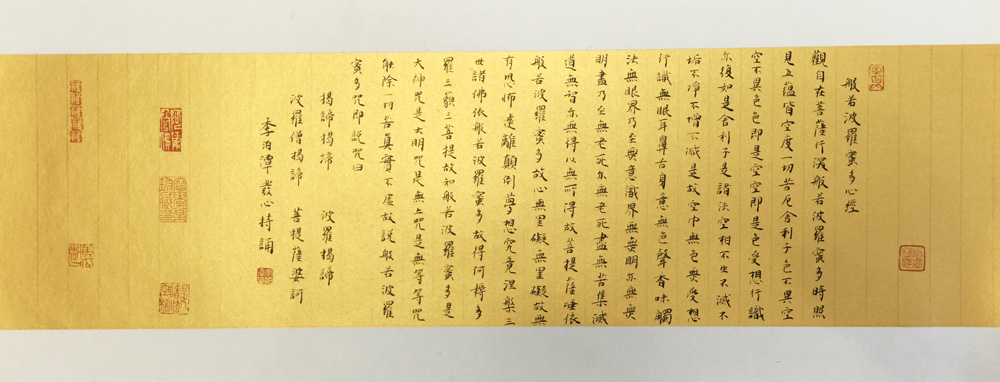 般若波羅蜜多心經
觀自在菩薩行深般若波羅蜜多時照
見五蘊皆空度一切苦厄舍利子色不異空
空不異色色即是空空即是色受想行識
亦復如是舍利子是諸法空相不生不滅不
垢不淨不增不減是故空中無色無受想
行識無眼耳鼻舌身意無色聲香味觸
法無眼界乃至無意識界無無明亦無無
明盡乃至無老死亦無老死盡無苦集滅
道無智亦無得以無所得故菩提薩埵依
般若波羅蜜多故心無罣礙無罣礙故無
有恐怖遠離顛倒夢想究竟涅槃三
世諸佛依般若波羅蜜多故得阿耨多
羅三藐三菩提故知般若波羅蜜多是
大神咒是大明咒是無上咒是無等等咒
能除一切苦真實不虛故說般若波羅
蜜多咒即說咒曰
揭諦揭諦 波羅揭諦
波羅僧揭諦 菩提薩婆訶
李泊潭發心持誦